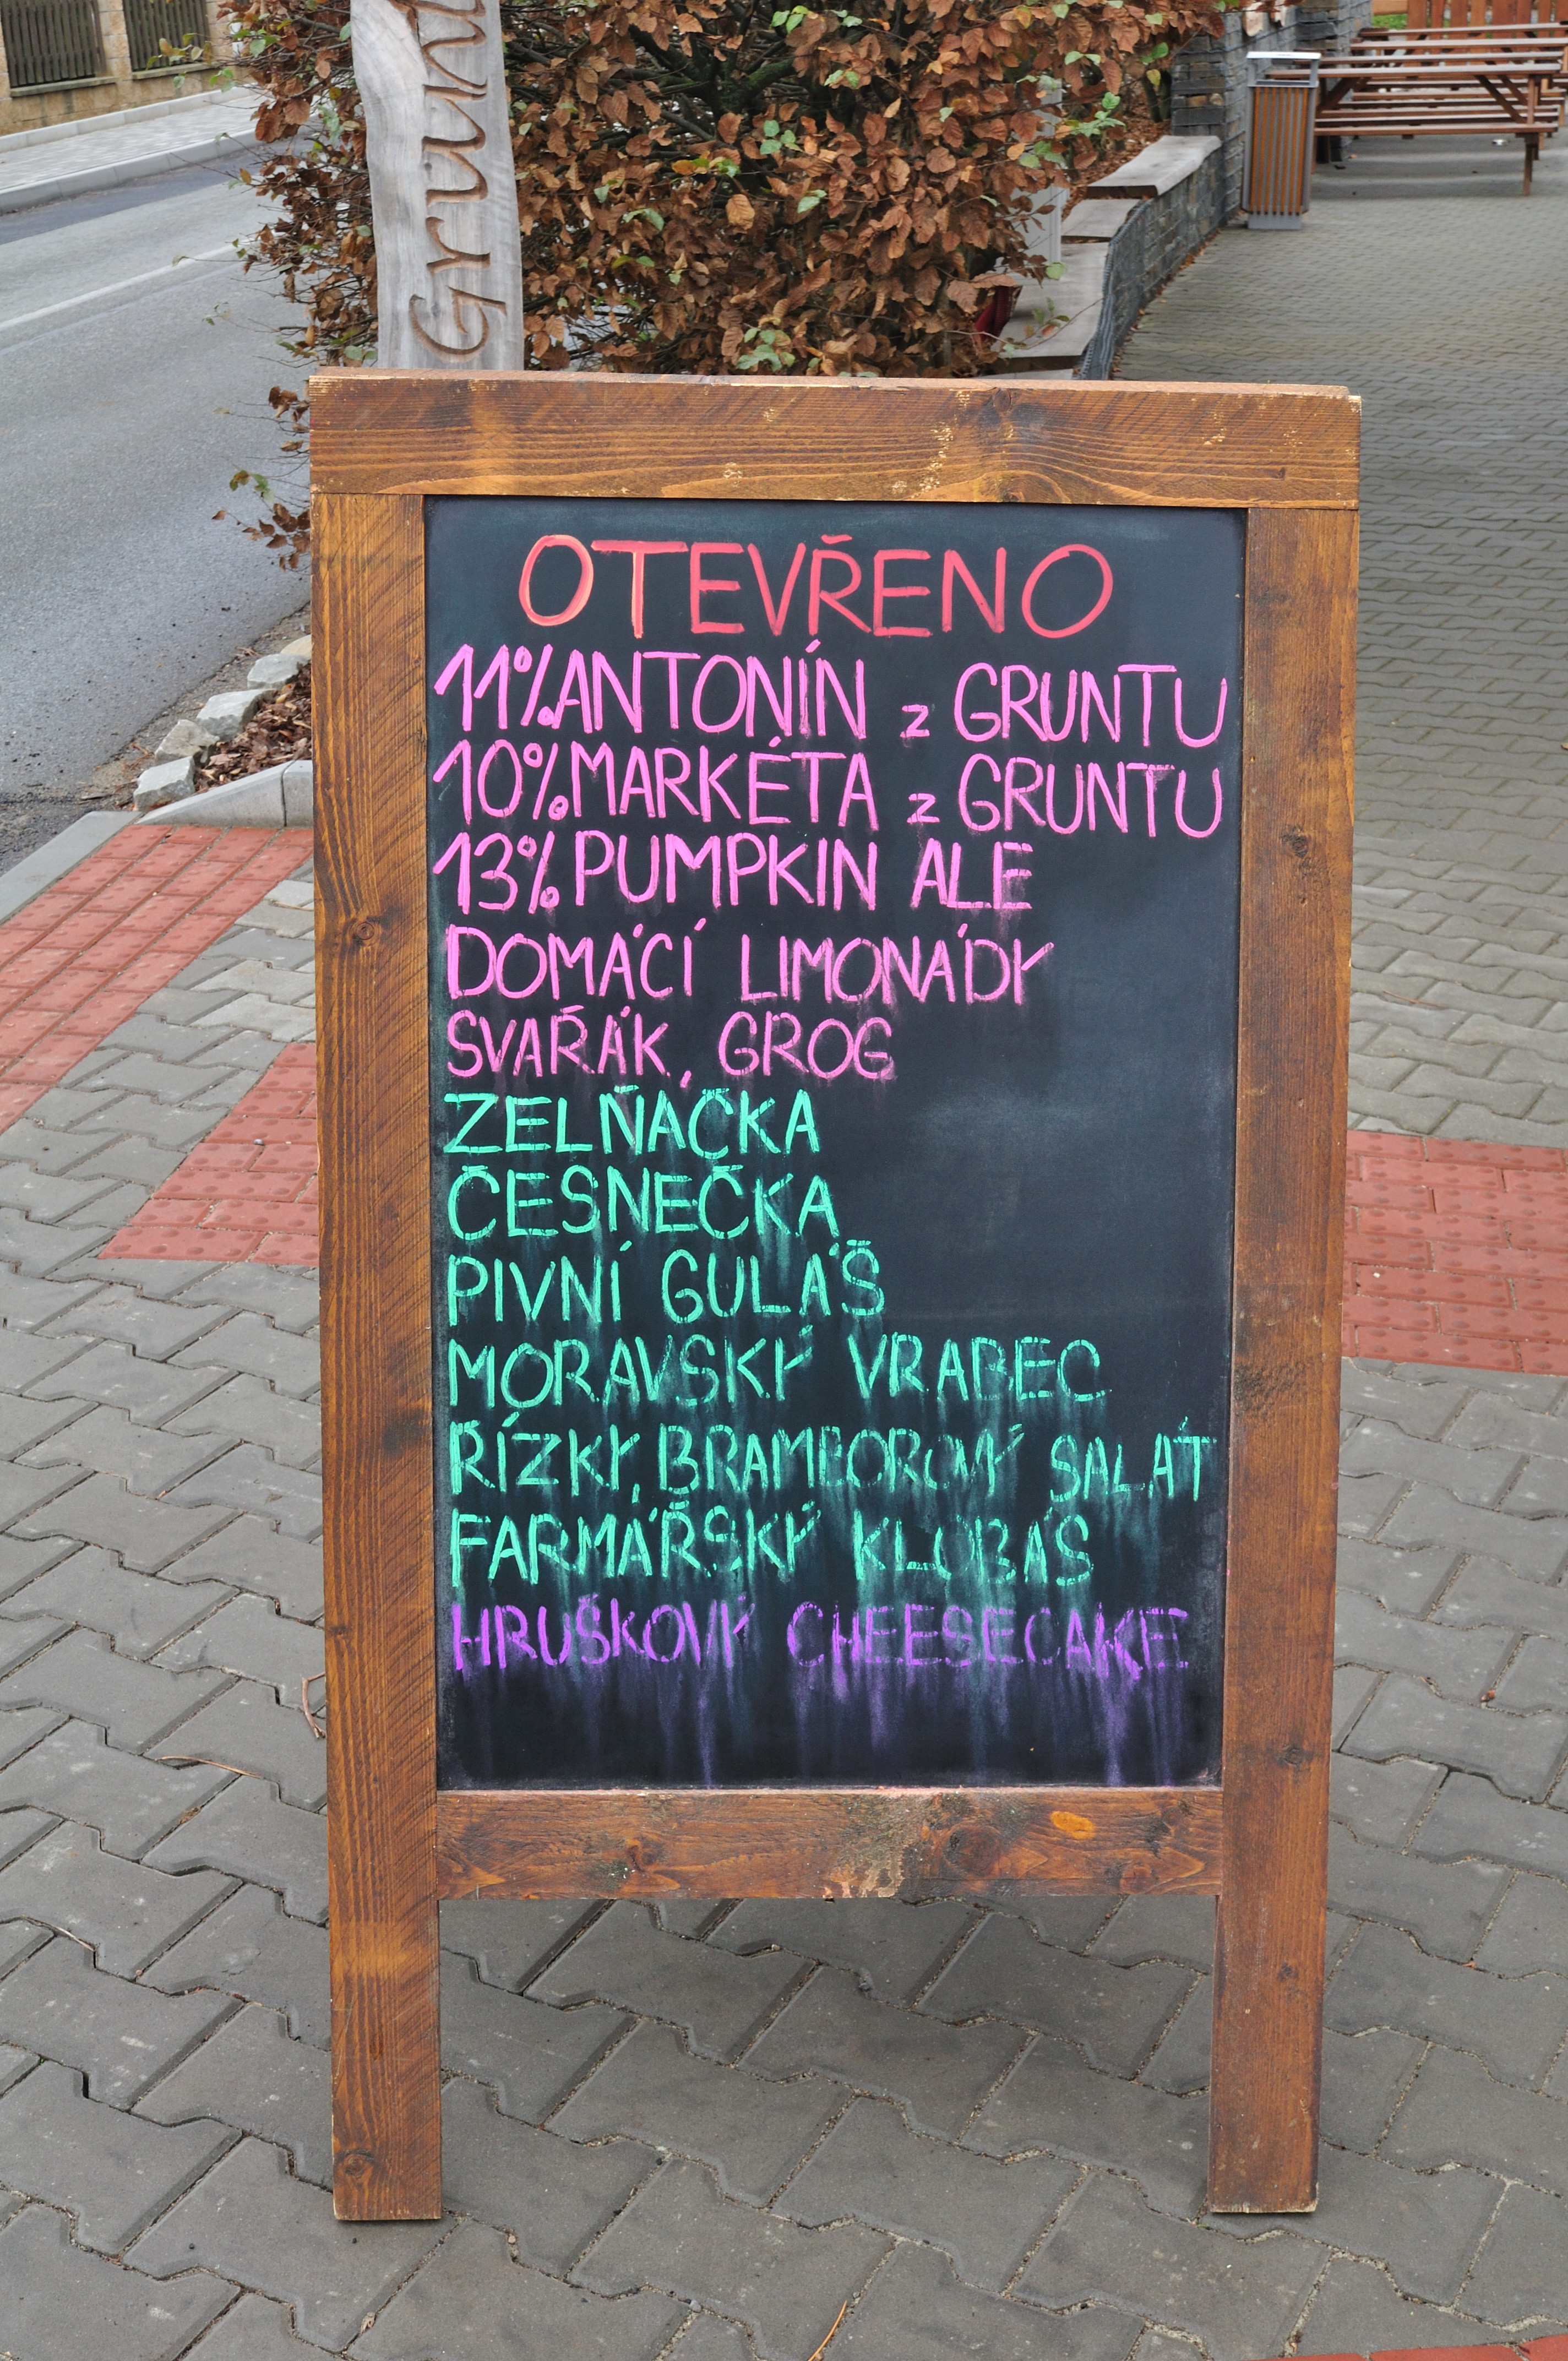 Grunt
OTEVŘENO
11% ANTONÍN z GRUNTU
10% MARKÉTA z GRUNTU
13% PUMPKIN ALE
DOMÁCÍ LIMONÁDY
SVAŘÁK, GROG
ZELŇAČKA
ČESNEČKA
PIVNÍ GULÁŠ
MORAVSKÝ VRABEC
ŘÍZKY, BRAMBOROVÝ SALÁT
FARMÁŘSKÝ KLOBÁS
HRUŠKOVÝ CHEESECAKE